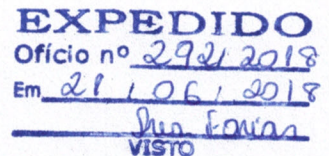 EXPEDIDO
Ofício nº 292/2018
Em 21/06/2018
Farias
VISTO